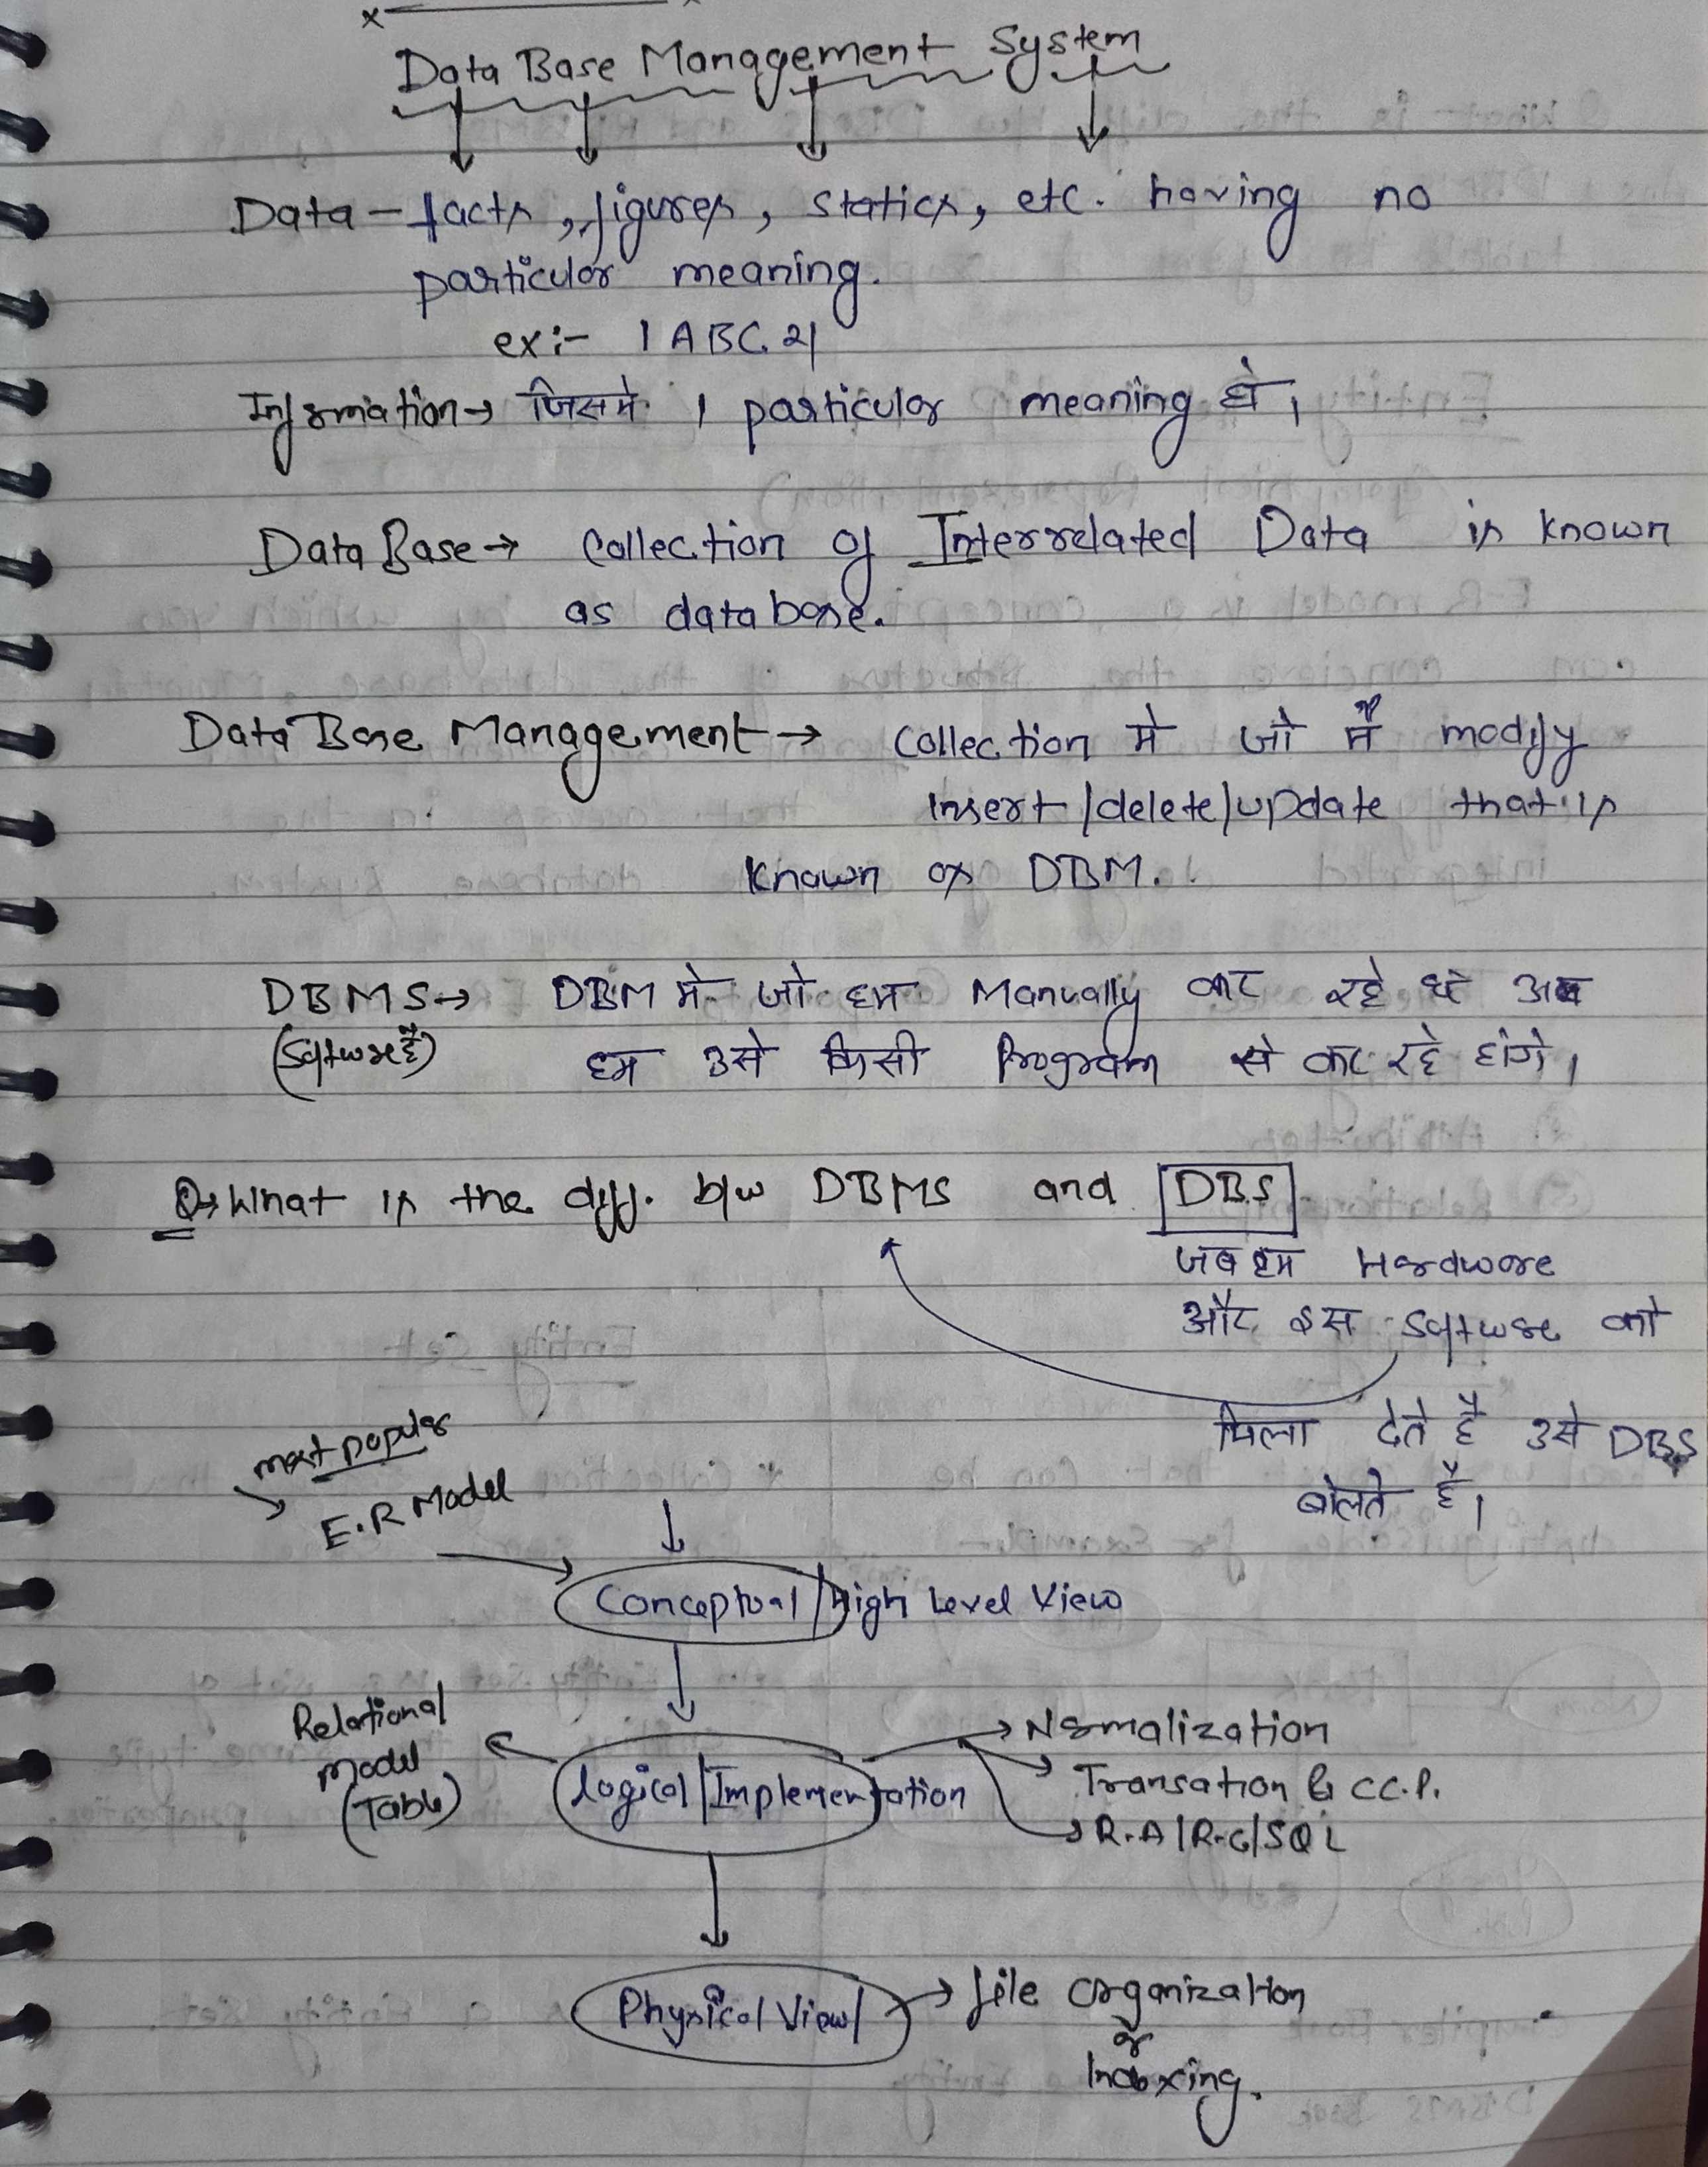 Data Base Management System
Data - facts, figures, statics, etc. having no
particular meaning.
ex:- 1 ABC 21
Information → जिसमे 1 particular meaning हो।
DataBase → Collection of Interrelated Data is known
as database.
DataBase Management → Collection मे जो मैं modify
insert/delete/update that is
known as DBM.
DBMS → DBM मे जो हम Manually कर रहे थे अब
(Software है) हम उसे किसी Program से कर रहे होंगे।
Q→ What is the diff. b/w DBMS and DBS
जब हम Hardware
और इस Software को
मिला देते है उसे DBS
बोलते है।
most popular
E.R Model
Conceptual/High Level View
Relational
Model
(Table)
Logical/Implementation
→ Normalization
→ Transation & C.C.P.
→ R.A/R.C/SQL
Physical View → file organization
or
Indexing.